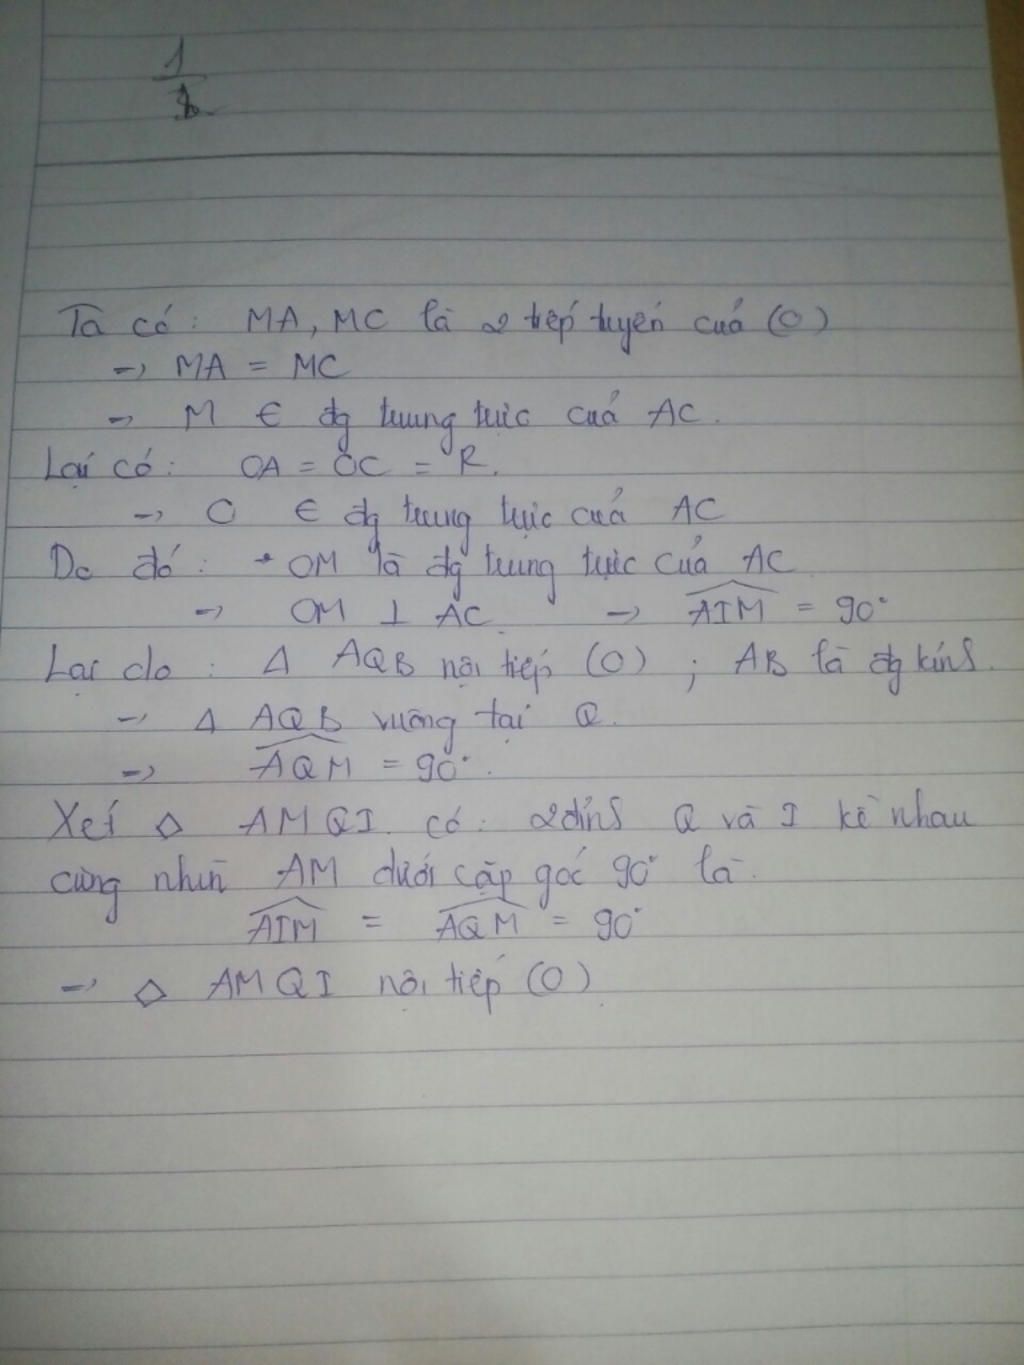 1
Ta có: MA, MC là 2 tiếp tuyến của (O)
→ MA = MC
→ M ∈ đg trung trực của AC.
Lại có: OA = OC = R.
→ O ∈ đg trung trực của AC
Do đó: OM là đg trung trực của AC
→ OM ⊥ AC. → AIM = 90°
Lại do: Δ AQB nội tiếp (O); AB là đg kính.
→ Δ AQB vuông tại Q.
→ AQM = 90°.
Xét ◇ AMQI. có: 2 đỉnh Q và I kề nhau
cùng nhìn AM dưới cặp góc 90° là.
AIM = AQM = 90°
→ ◇ AMQI nội tiếp (O)